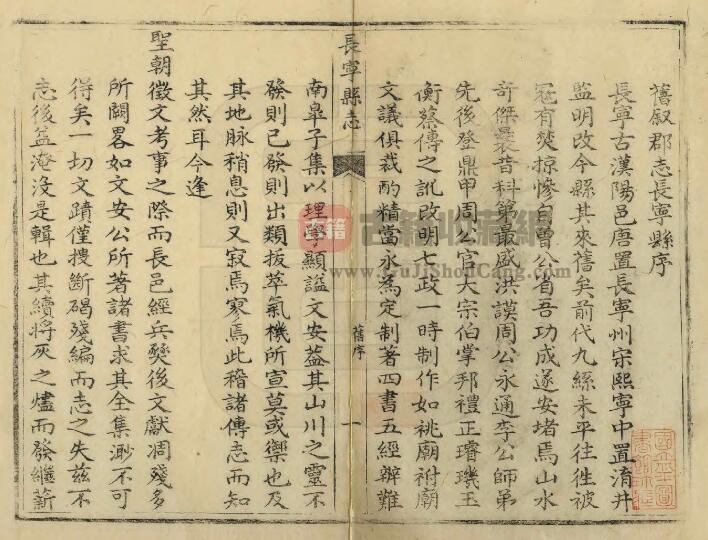 舊叙郡志長寧縣序
長寧古漢陽邑唐置長寧州宋熙寧中置淯井
監明改今縣其來舊矣前代九絲未平往徃被
寇有焚掠慘自曾公省吾功成遂安堵焉山水
奇傑曩昔科第最盛洪謨周公永通李公師弟
先後登鼎甲周公官大宗伯掌邦禮正璿璣玉
衡蔡傳之訛改明七政一時制作如祧廟祔廟
文議俱裁酌精當永為定制著四書五經辨難
長寧縣志
舊序
一
南皐子集以理學顯謚文安葢其山川之靈不
發則已發則出類拔萃氣機所宣莫或禦也及
其地脉稍息則又寂焉寥焉此稽諸傳志而知
其然耳今逢
聖朝徵文考事之際而長邑經兵燹後文獻凋殘多
所闕畧如文安公所著諸書求其全集渺不可
得矣一切文蹟僅搜斷碣殘編而志之失兹不
志後益淹没是輯也其續將灰之燼而發繼薪
古籍收藏網
www.GuJiShouCang.com